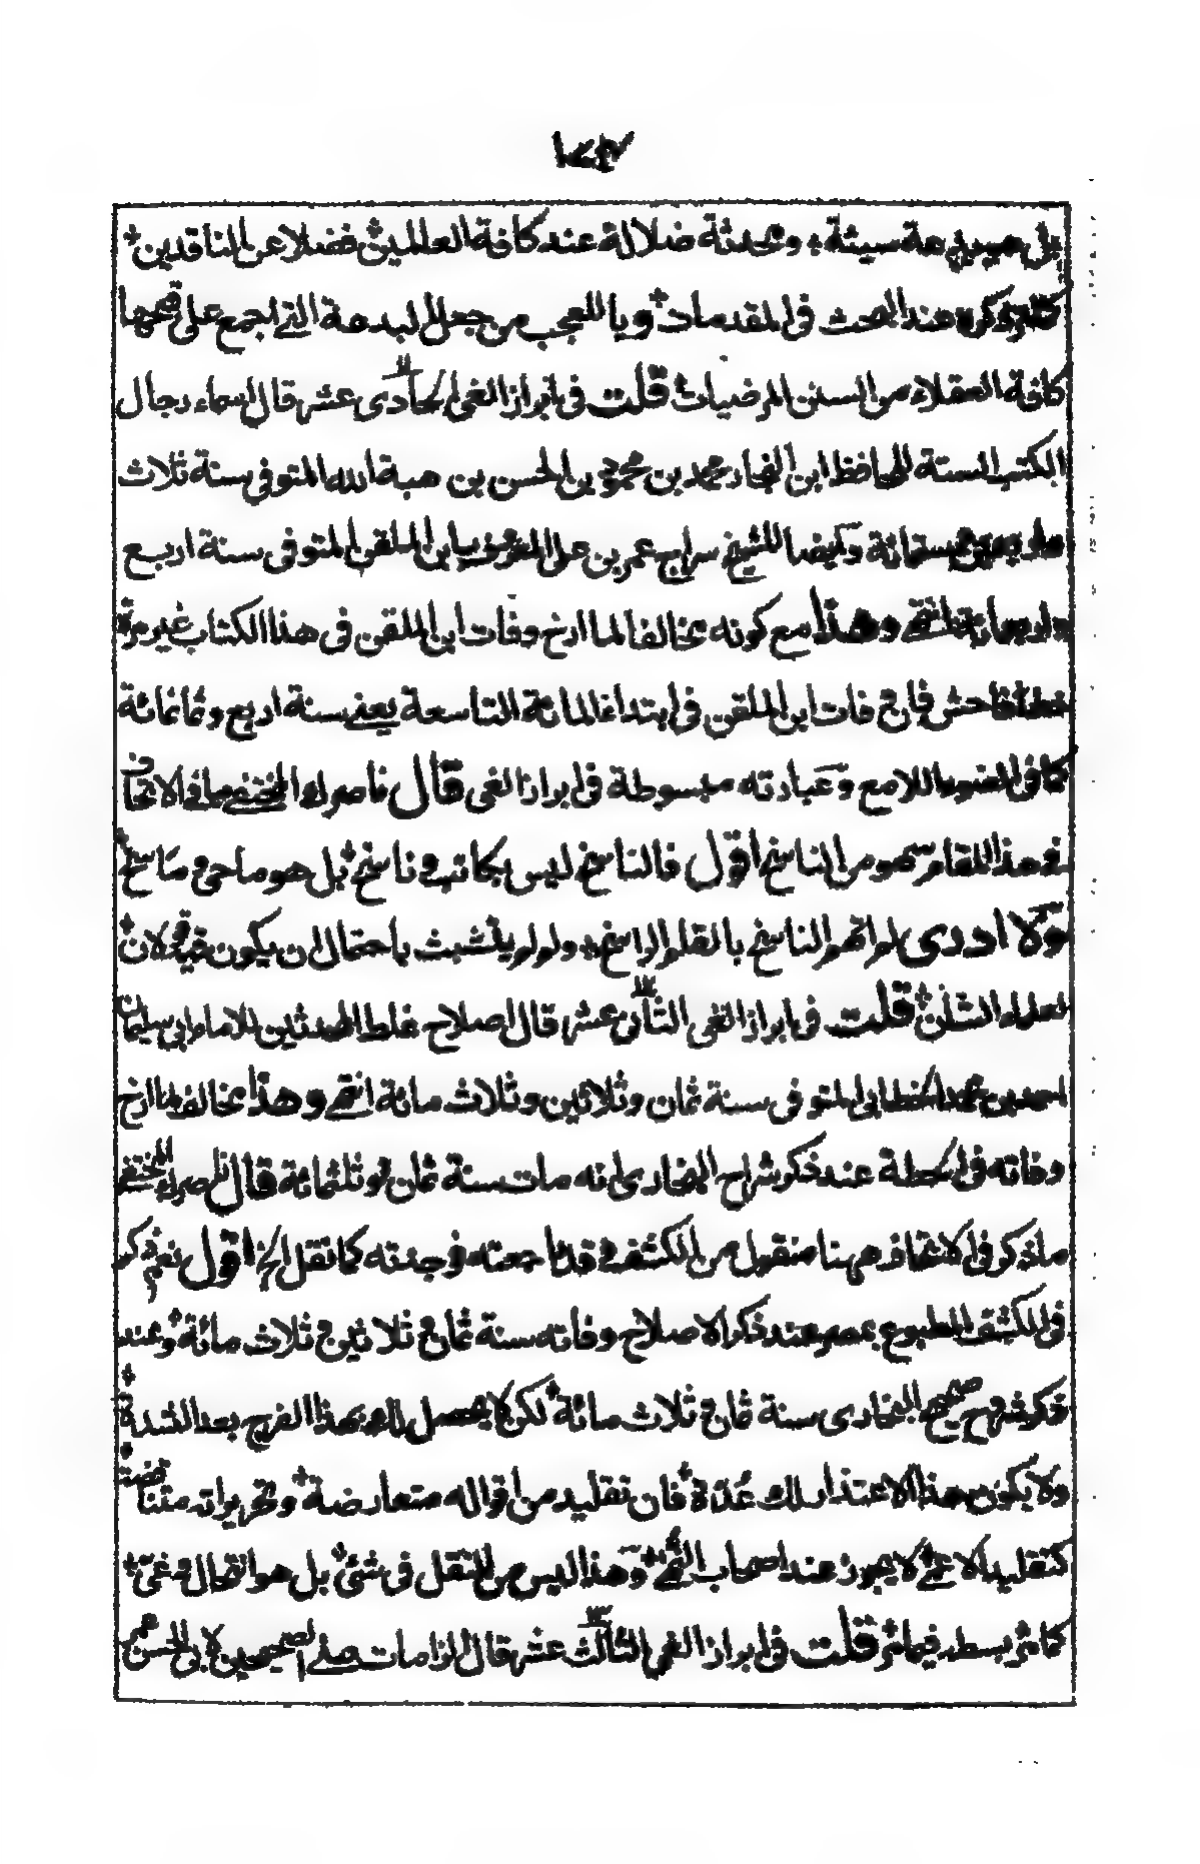 ١٤٧
بل هي بدعة سيئة ومحدثة ضلالة عند كافة العالمين فضلا عن الناقدين
كما مر ذكره عند البحث في المقدمات ويا للعجب من جعل البدعة التي اجمع على قبحها
كافة العقلاء من السنن المرضيات قلت في ابراز الغي الحادي عشر قال اسماء رجال
الكتب الستة للحافظ ابن النجار محمد بن محمود بن الحسن بن هبة الله المتوفى سنة ثلاث
واربعين وستمائة وايضا للشيخ سراج عمر بن على المعروف بابن الملقن المتوفى سنة اربع
واربعمائة انتهى وهذا مع كونه مخالفا لما ارخ وفات ابن الملقن في هذا الكتاب غير مرة
خطأ فاحش فان وفات ابن الملقن في ابتداء المائة التاسعة يعني سنة اربع وثمانمائة
كما في الضوء اللامع وعبارته مبسوطة في ابراز الغي قال ناصرك المختفي ما في الاتحاف
في هذا المقام سهو من الناسخ اقول فالناسخ ليس بكاتب وناسخ بل هو ماحي وماسخ
ولا ادري لم اتهم الناسخ بالقلم الراسخ ولم لم يتشبث باحتمال ان يكون فيه قولان
لعلماء الشان قلت في ابراز الغي الثاني عشر قال اصلاح غلط المحدثين للامام ابي سليمان
احمد بن محمد الخطابي المتوفى سنة ثمان وثلاثين وثلاث مائة انتهى وهذا مخالف لما ارخ
وفاته في الحطة عند ذكر شراح البخاري انه مات سنة ثمان وثلثمائة قال ناصرك المختفي
ما ذكر في الاتحاف ههنا منقول من الكشف وقد راجعته فوجدته كما نقل الخ اقول نعم ذكر
في الكشف المطبوع بمصر عند ذكر الاصلاح وفاته سنة ثمان وثلاثين وثلاث مائة وعند
ذكر شروح صحيح البخاري سنة ثمان وثلاث مائة لكن لا يحصل لك بهذا الفرج بعد الشدة
ولا يكون هذا الاعتذار لك عدة فان تقليد من اقواله متعارضة وتحريراته متناقضة
كتقليد الاعمى لا يجوز عند اصحاب النهى وهذا ليس من النقل في شئ بل هو انتحال وغي
كما مر بسطه فيما مر قلت في ابراز الغي الثالث عشر قال الزامات على الصحيحين لابي الحسن